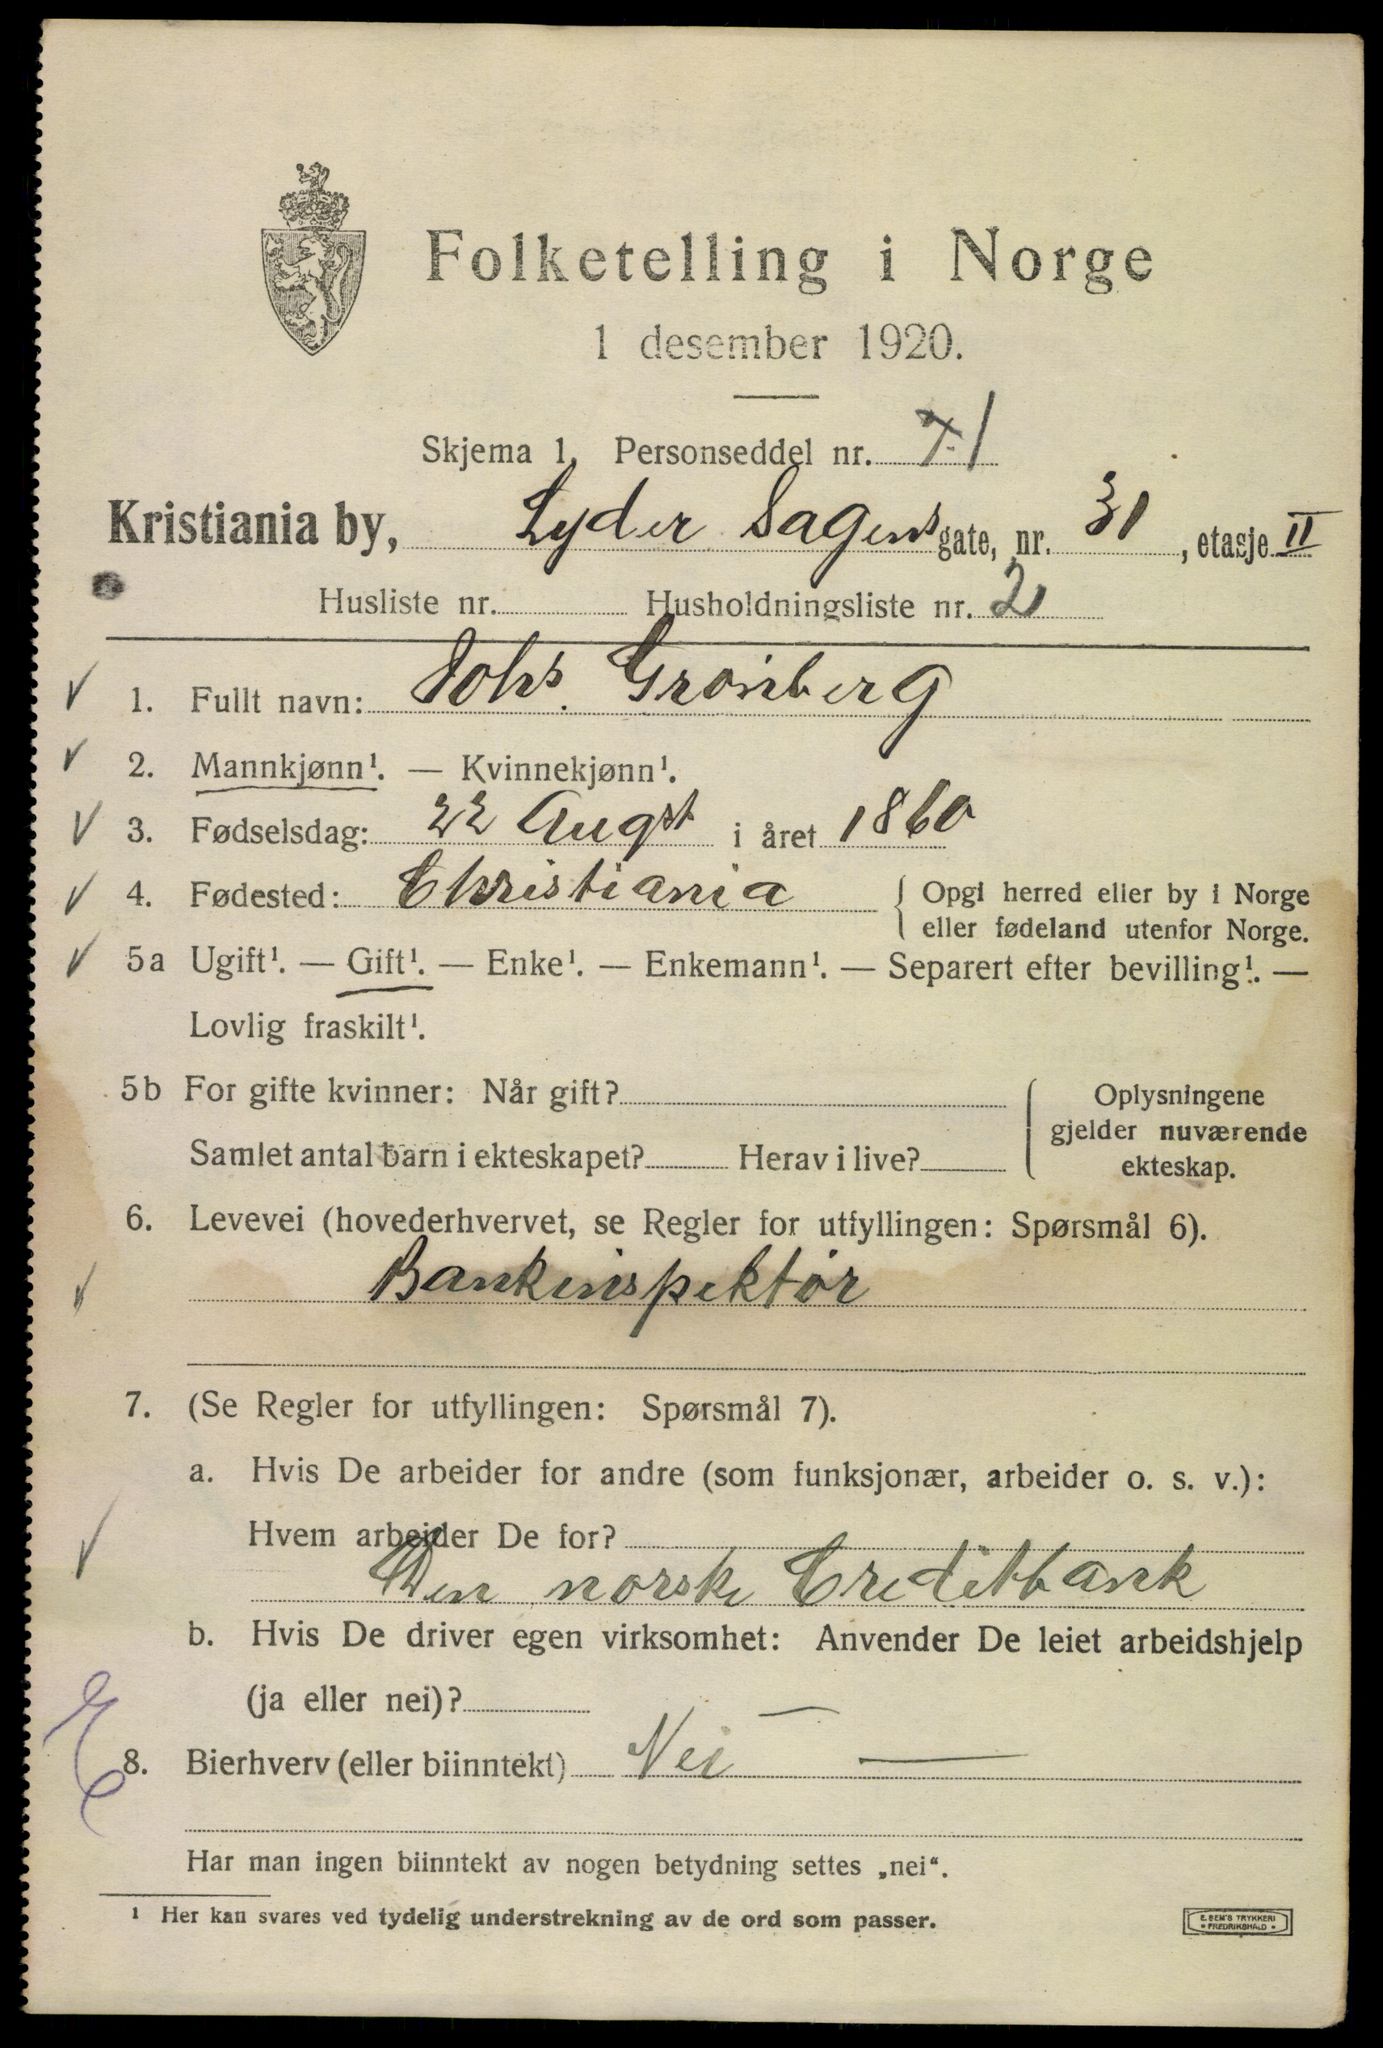 Folketelling i Norge
1 desember 1920.
Skjema 1. Personseddel nr. 1
Kristiania by, Lyder Sagens gate, nr. 31, etasje II
Husliste nr. Husholdningsliste nr. 2
1. Fullt navn: Johs. Grønberg
2. Mannkjønn¹. — Kvinnekjønn¹.
3. Fødselsdag: 22 Augst i året 1860
4. Fødested: Christiania { Opgi herred eller by i Norge
eller fødeland utenfor Norge.
5a Ugift¹. — Gift¹. — Enke¹. — Enkemann¹. — Separert efter bevilling¹. —
Lovlig fraskilt¹.
5b For gifte kvinner: Når gift? { Oplysningene
gjelder nuværende
Samlet antal barn i ekteskapet? Herav i live?
ekteskap.
6. Levevei (hovederhvervet, se Regler for utfyllingen: Spørsmål 6).
Bankinspektør
7. (Se Regler for utfyllingen: Spørsmål 7).
a. Hvis De arbeider for andre (som funksjonær, arbeider o. s. v.):
Hvem arbeider De for?
Den norske Creditbank
b. Hvis De driver egen virksomhet: Anvender De leiet arbeidshjelp
(ja eller nei)? —
8. Bierhverv (eller biinntekt) Nei —
Har man ingen biinntekt av nogen betydning settes „nei“.
¹ Her kan svares ved tydelig understrekning av de ord som passer.
E. SEM'S TRYKKERI
* FREDRIKSHALD *